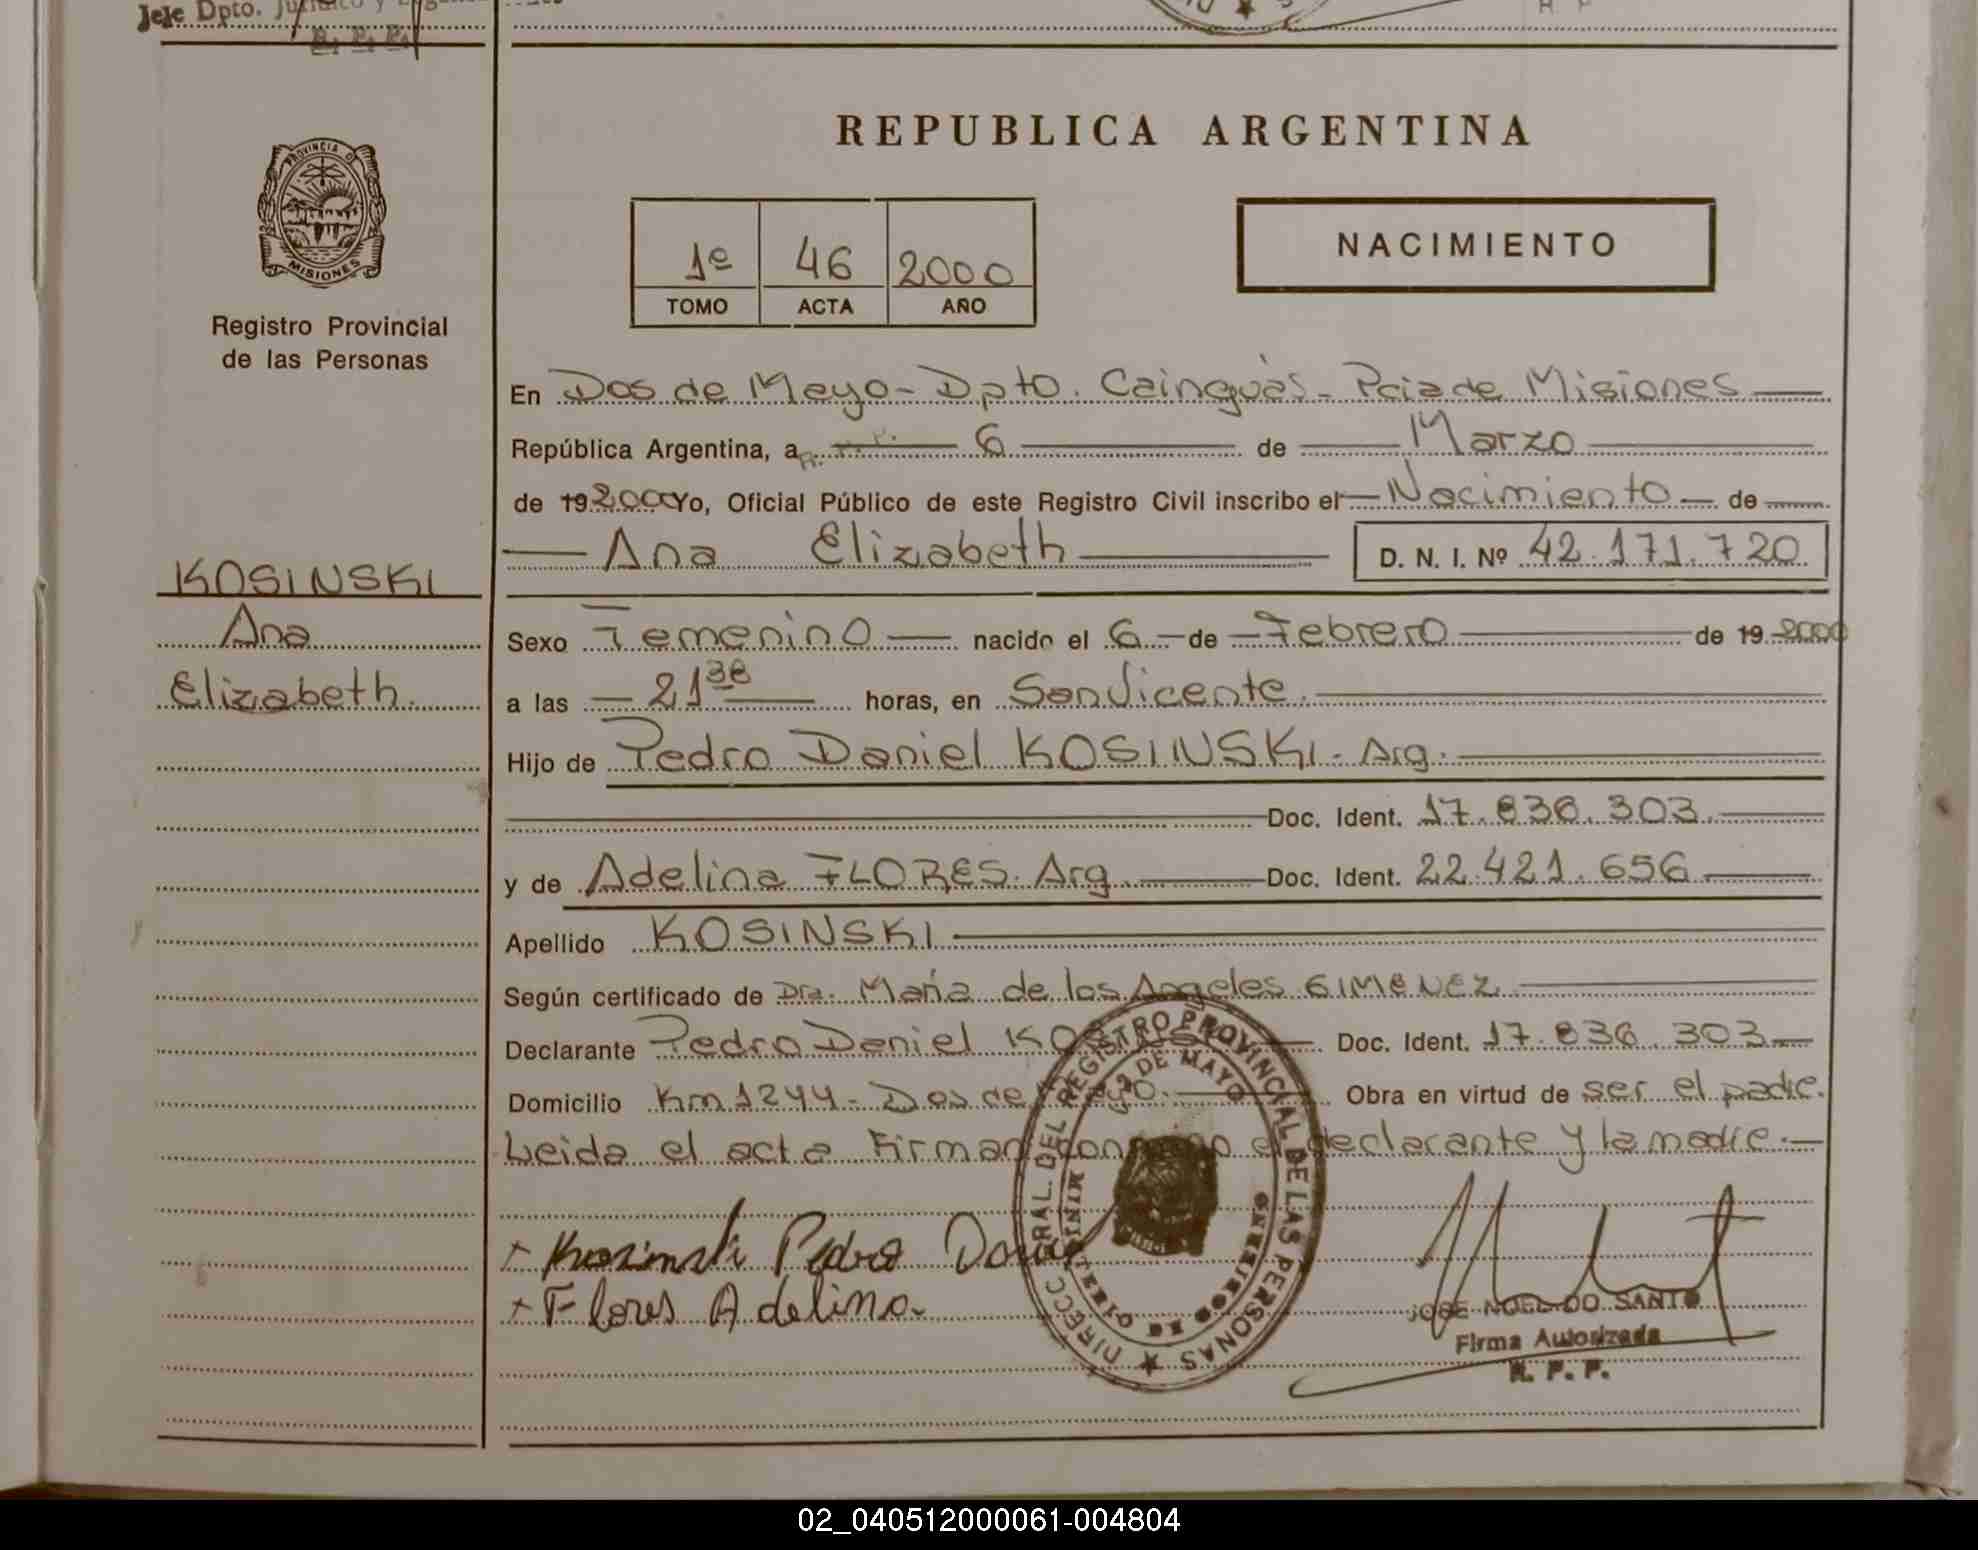 Jefe Dpto.
R. P. P.
PROVINCIA D
MISIONES
Registro Provincial
de las Personas
REPUBLICA ARGENTINA
1º 46 2000
TOMO ACTA AÑO
NACIMIENTO
En Dos de Mayo - Dpto. Cainguàs - Pcia de Misiones
República Argentina, a 6 de Marzo
de 19 2000 Yo, Oficial Público de este Registro Civil inscribo el Nacimiento de
Ana Elizabeth D. N. I. Nº 42.171.720
KOSINSKI
Ana
Elizabeth.
Sexo Femenino nacido el 6 de Febrero de 19 2000
a las 21 38 horas, en San Vicente.
Hijo de Pedro Daniel KOSINSKI - Arg.
Doc. Ident. 17.836.303.
y de Adelina FLORES. Arg. Doc. Ident. 22.421.656
Apellido KOSINSKI
Según certificado de Dra. María de los Angeles GIMENEZ
Declarante Pedro Daniel Doc. Ident. 17.836.303
Domicilio Km 1244 - Dos de Obra en virtud de ser el padre.
Leida el acta Firman declarante y la madre.
+ Kosinski Pedro
+ Flores Adelina.
DIRECC. GRAL. DEL REGISTRO PROVINCIAL DE LAS PERSONAS
2 DE MAYO
JOSE NOEL DO SANTO
Firma Autorizada
R. P. P.
02_040512000061-004804